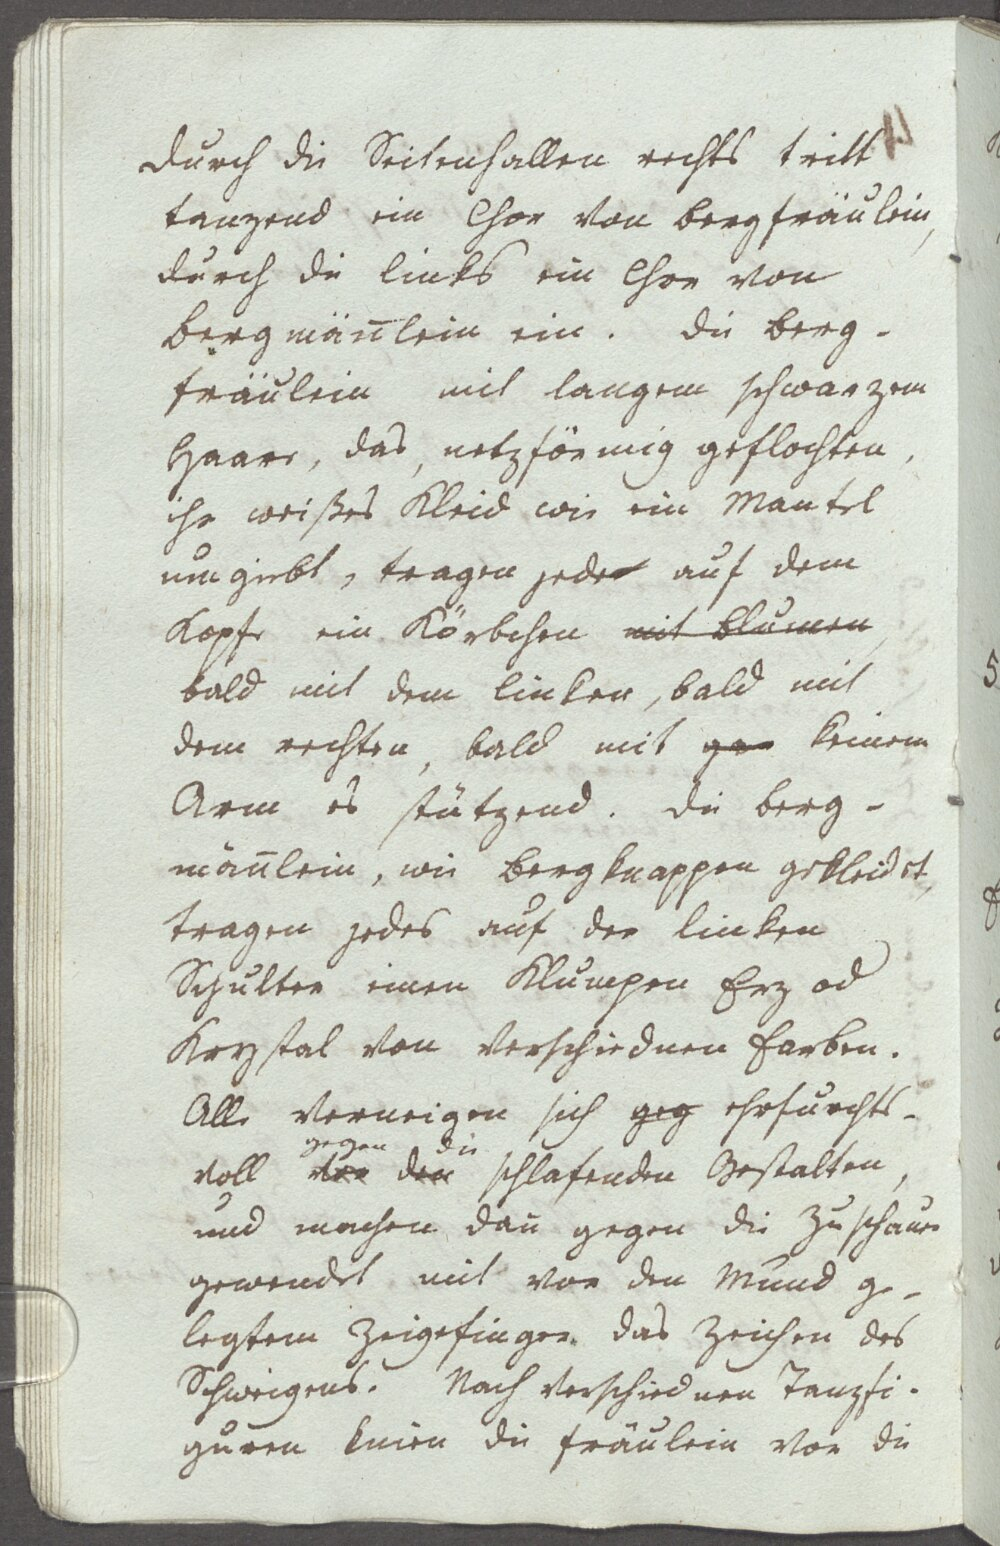 durch die Seitenhallen rechts tritt
tanzend ein Chor von Bergfräulein,
durch die links ein Chor von
Bergmänlein ein. Die Berg-
fräulein mit langem schwarzem
Haare, das, netzförmig geflochten,
ihr weißes Kleid wie ein Mantel
umgiebt, tragen jedes auf dem
Kopfe ein Körbchen mit Blumen,
bald mit dem linken, bald mit
dem rechten, bald mit keinem
Arm es stützend. Die Berg-
mänlein, wie Bergknappen gekleidet,
tragen jedes auf der linken
Schulter einen Klumpen Erz od
Krystal von verschiednen Farben.
Alle verneigen sich geg ehrfurchts-
gegen die
voll vor den schlafenden Gestalten,
und machen dan gegen die Zuschauer
gewendet mit vor den Mund ge-
legtem Zeigefinger das Zeichen des
Schweigens. Nach verschiednen Tanzfi-
guren knien die Fräulein vor die